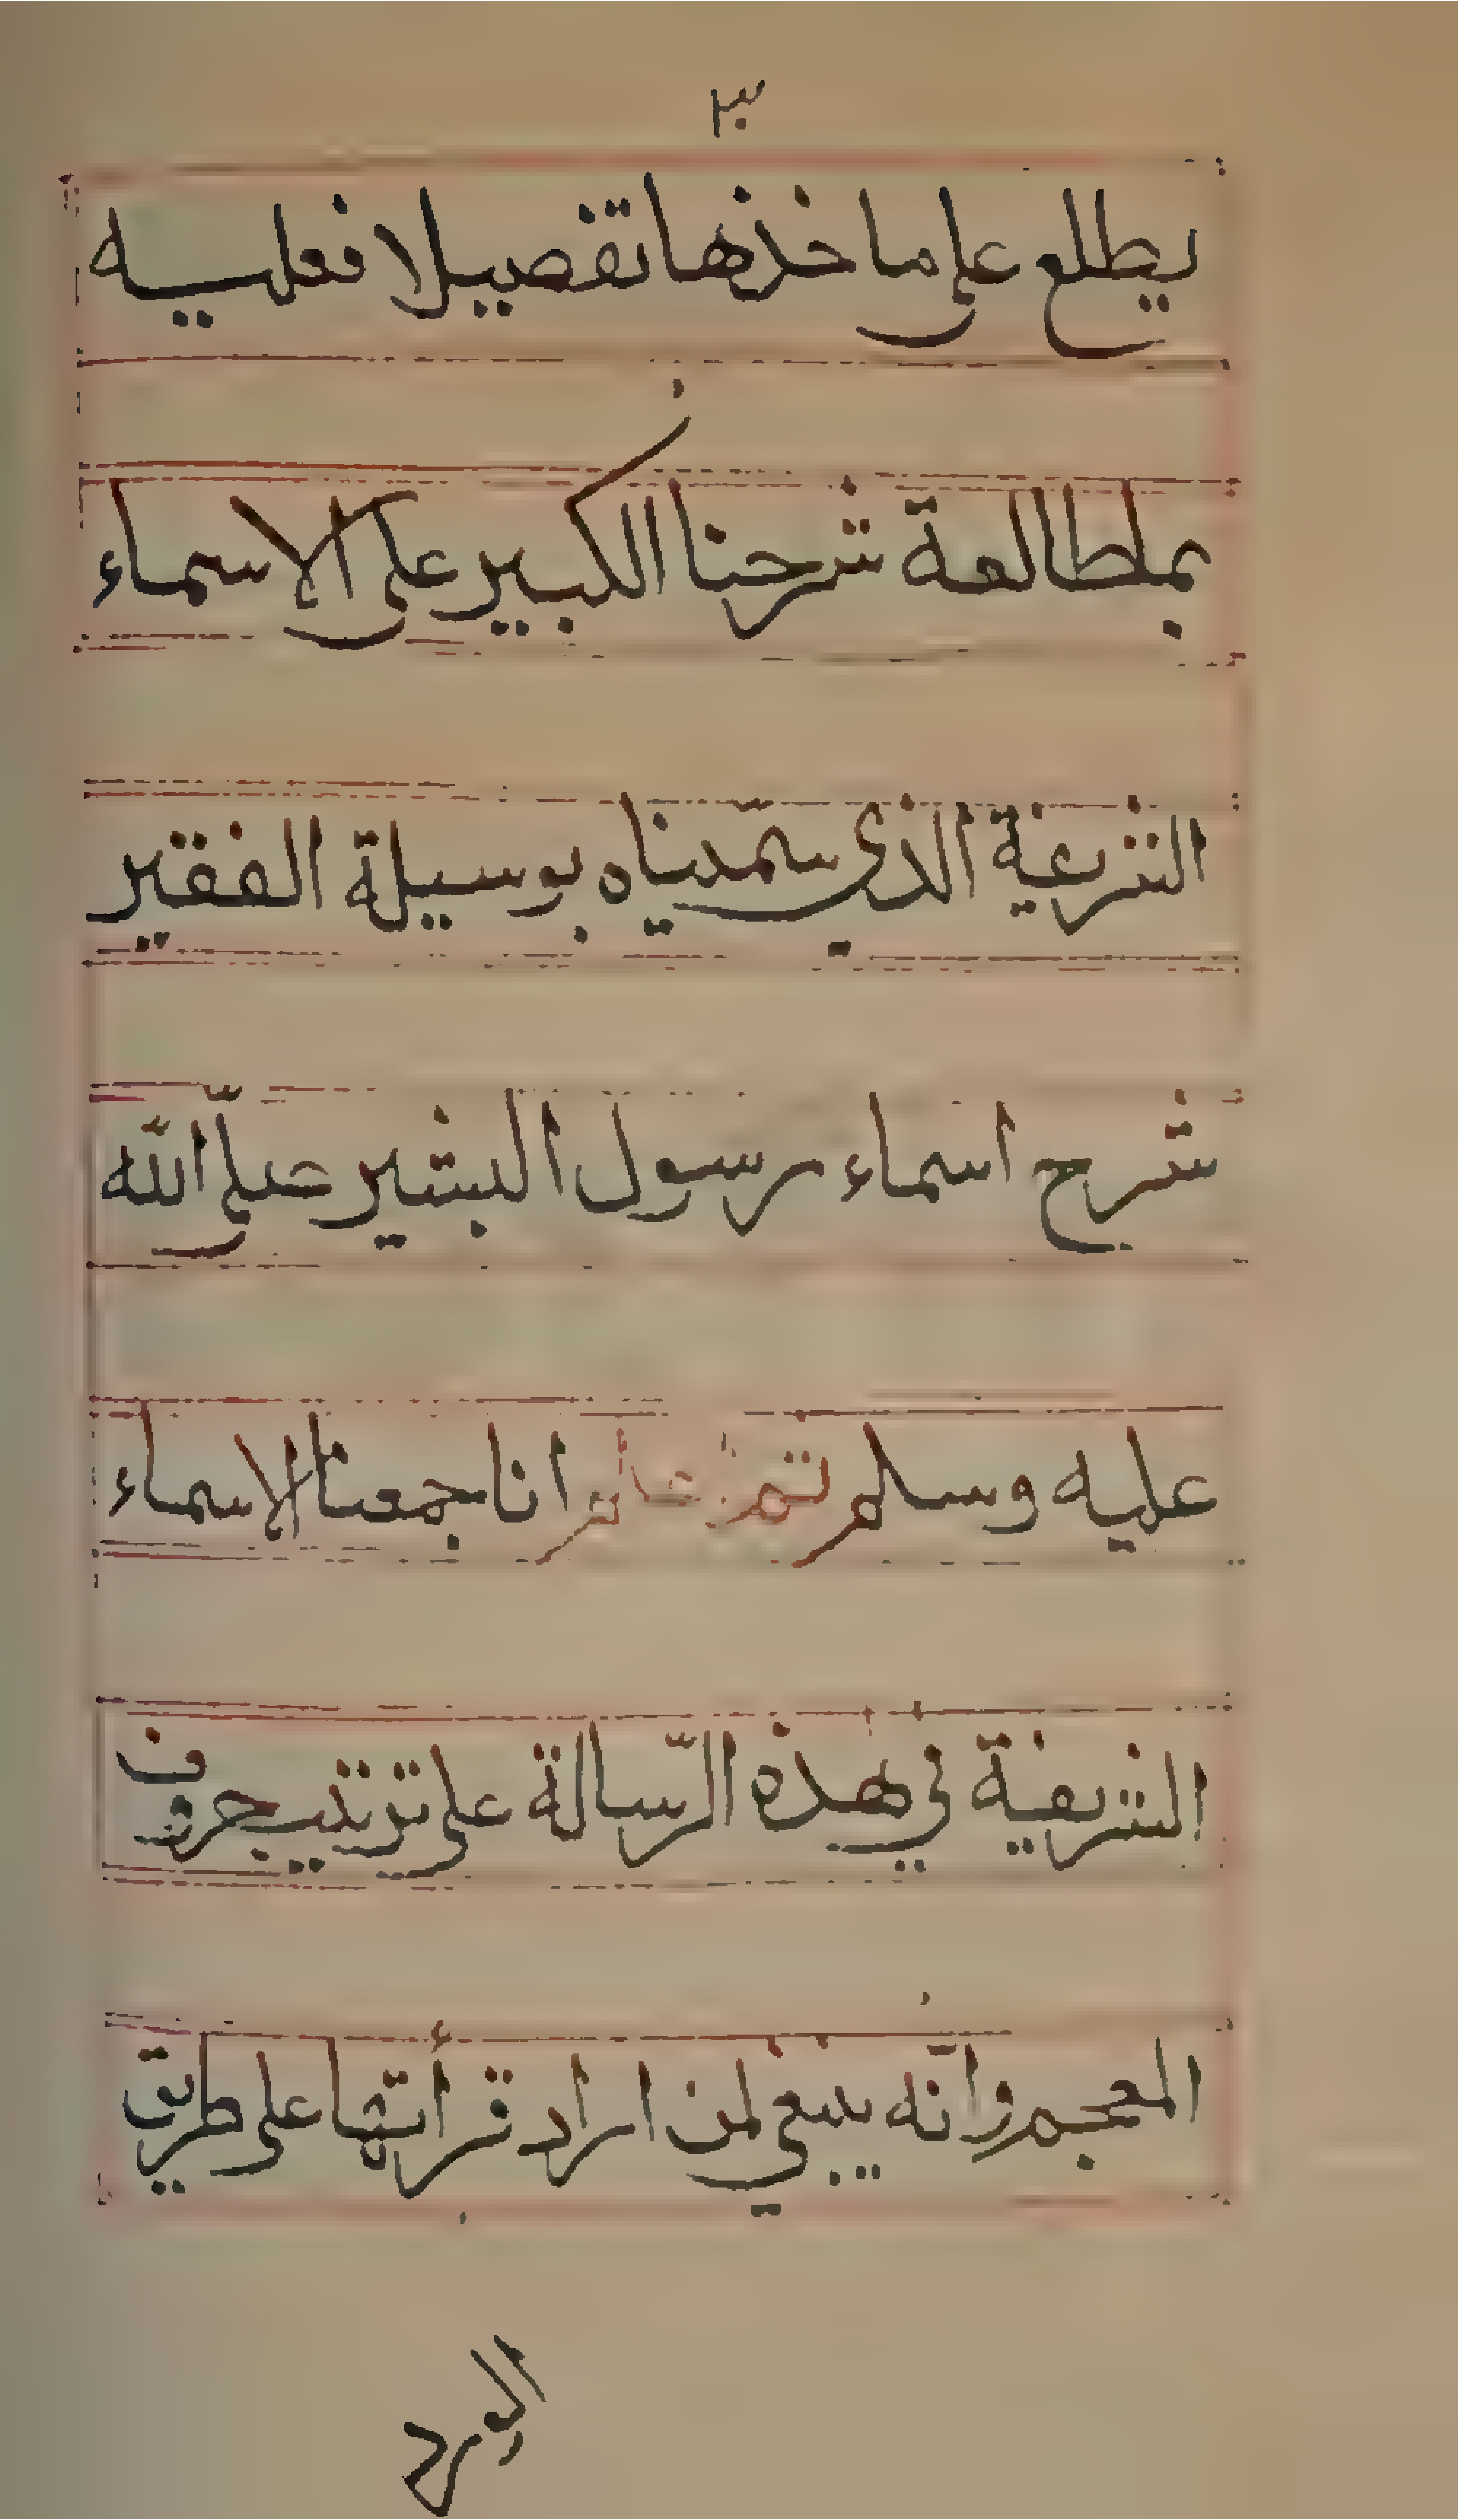 ٣
يطلع على ماخذها تفصيلا فعليه
بمطالعة شرحنا الكبير على الاسماء
الشريفة الذي سمّيناه بوسيلة الفقير
شرح اسماء رسول البشير صلّى الله
عليه وسلم ثم اعلم انا جمعنا الاسماء
الشريفة في هذه الرّسالة على ترتيب حروف
المعجم وانّه ينبغي لمن اراد قرأتها على طريق
الورد